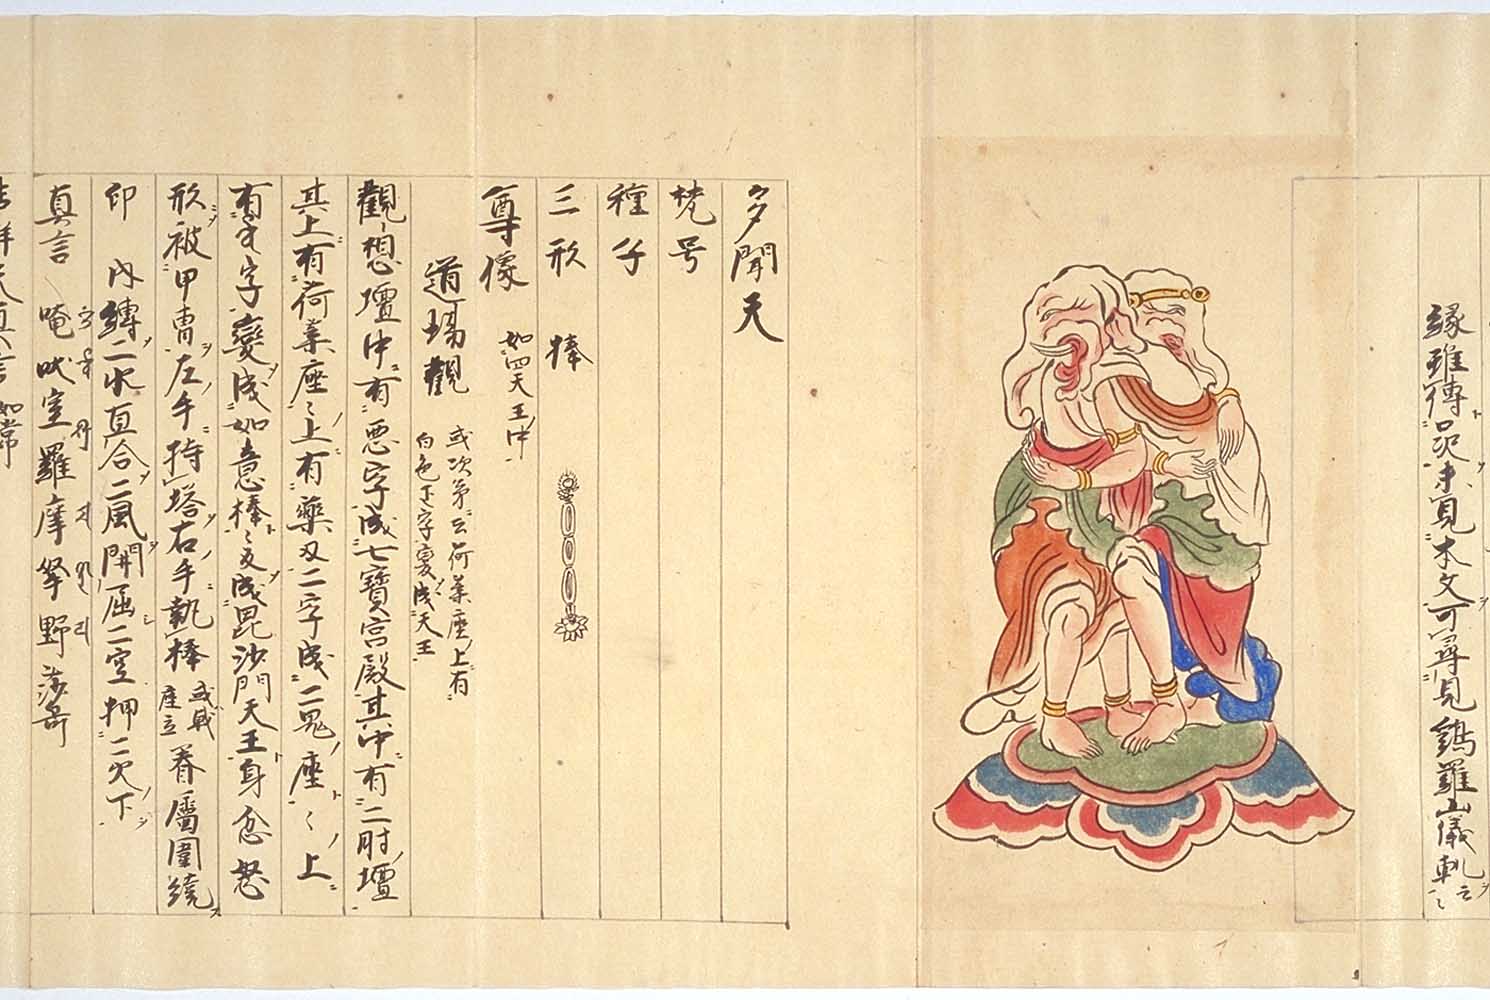 縁雖傳 未見本文可尋見 鶏羅山儀軌云〻
多聞天
梵号
種子
三形 棒
尊像 如四天王中
道場觀 或次第云荷葉座上有
白色 字変成天王
觀想壇中有悪字成七寶宮殿其中有二肘壇
其上有荷葉座〻上有藥叉二字成二鬼座〻上
有 字變成如意棒〻変成毘沙門天王身忿怒
形被甲冑左手持塔右手執棒 或戟 座立 眷屬圍繞
印 内縛二水直合二風開屈二空押二火下
真言 唵吠室羅摩拏野莎
吉祥天真言 如常